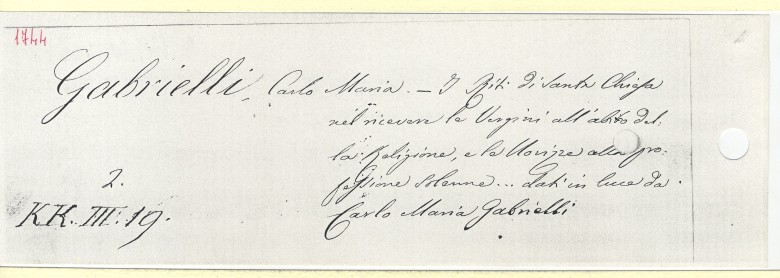 1744
Gabrielli, Carlo Maria. — I Riti di Santa Chiesa
nel ricevere le Vergini all'abito del:
la Religione, e le Novizze alla pro-
fessione solenne... dati in luce da
Carlo Maria Gabrielli
2.
KK. III. 19.